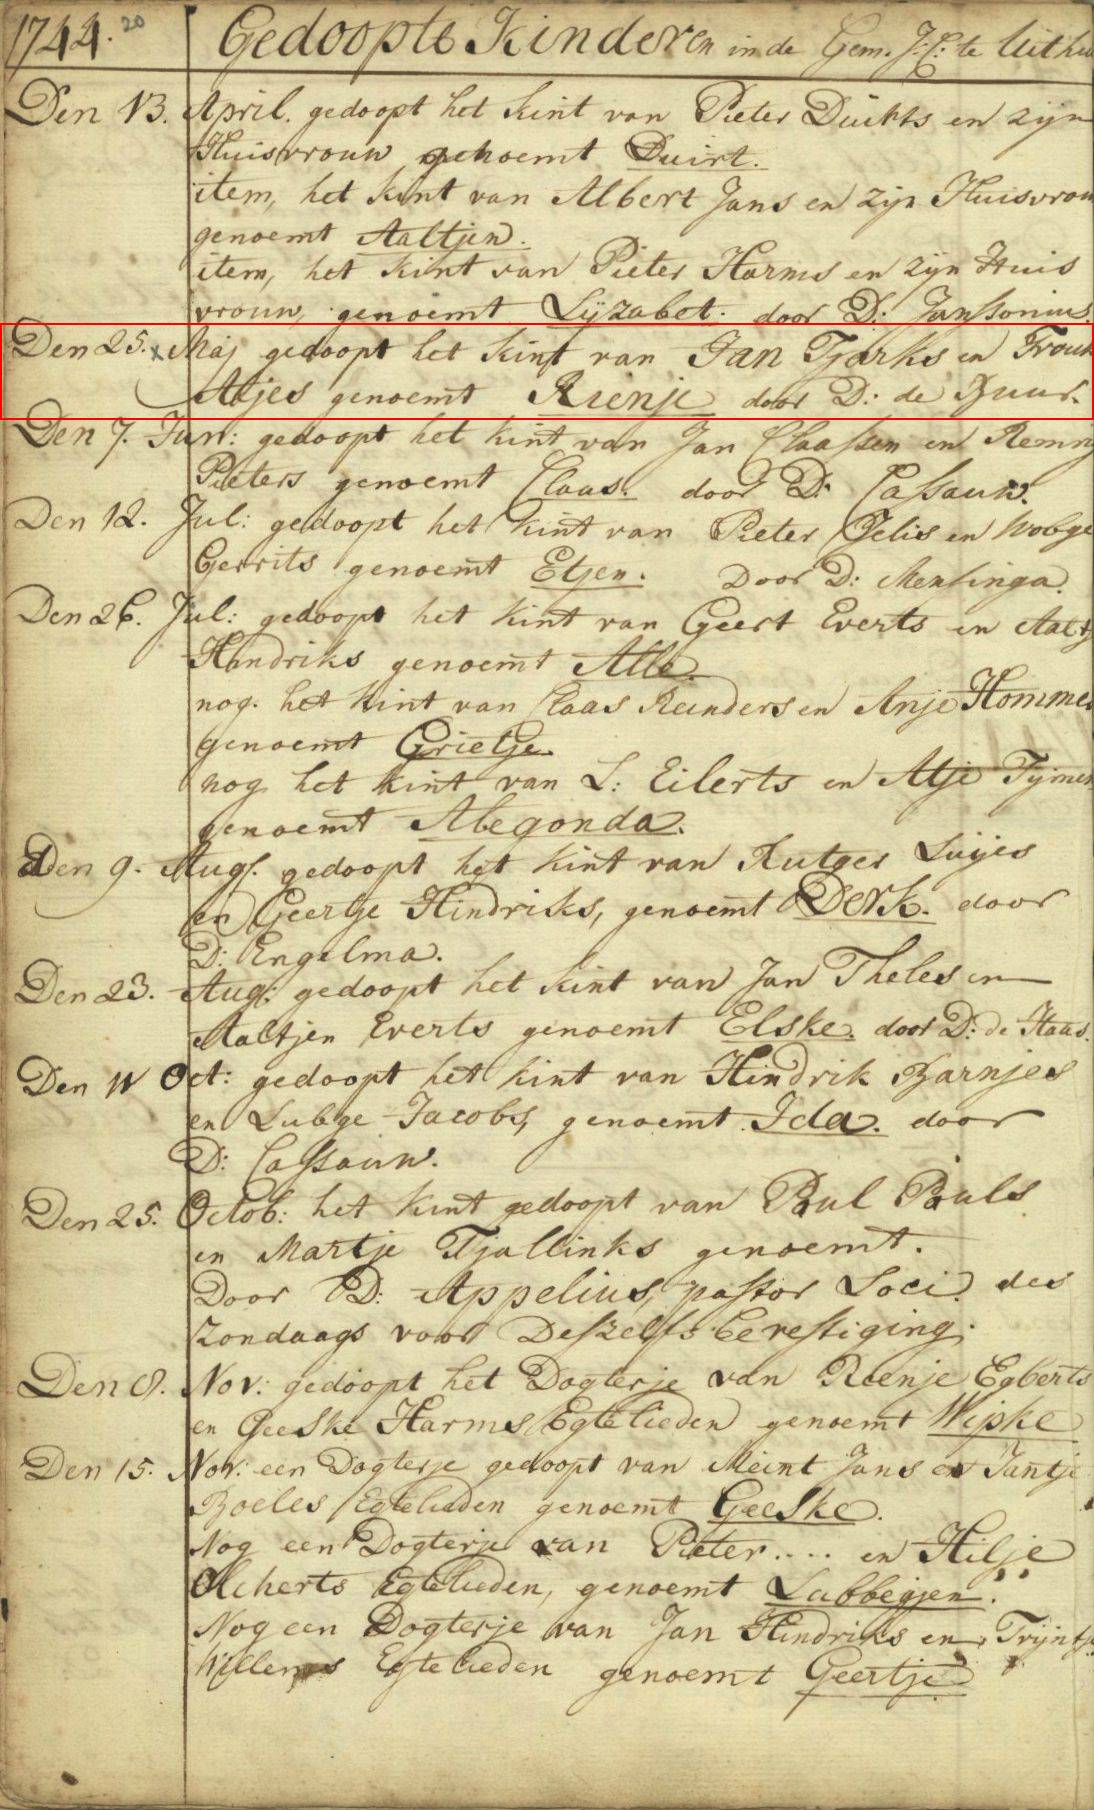 1744. 20 Gedoopte Kinderen in de Gem. J: C: te Uithu
Den 13. April. gedoopt het kint van Pieter Duirts en zijn
Huisvrouw genoemt Duirt.
item, het kint van Albert Jans en zijn Huisvrou
genoemt Aaltjen.
item, het kint van Pieter Harms en zijn Huis
vrouw, genoemt Lijzabet. door D: Janssonius.
Den 25. x Maj gedoopt het kint van Jan Tjarks en Trouw
Atjes genoemt Rienje door D: de Buur.
Den 7. Jun: gedoopt het kint van Jan Claassen en Remng
Pieters genoemt Claas. door D: Cassauw.
Den 12. Jul: gedoopt het kint van Pieter Jelis en Wobge
Gerrits genoemt Etjen. Door D: Mensinga.
Den 26. Jul: gedoopt het kint van Geert Everts en Aaltj
Hindriks genoemt Alle.
nog. het kint van Claas Reinders en Anje Hommes
genoemt Grietje.
nog het kint van L: Eilerts en Atje Tijmen
genoemt Alegonda.
Den 9. Augs. gedoopt het kint van Rutger Luijes
en Geertje Hindriks, genoemt Derk. door
D: Engelma.
Den 23. Aug: gedoopt het kint van Jan Theles en
Aaltjen Everts genoemt Elske. door D: de Haas.
Den 11 Oct: gedoopt het kint van Hindrik Barnjes
en Lubge Jacobs, genoemt Ida. door
D: Cassauw.
Den 25. Octob: het kint gedoopt van Paul Pauls
en Martje Tjallinks genoemt.
Door D: Appelius, pastor Loci des
zondaags voor Deszelfs bevestiging.
Den 8. Nov: gedoopt het Dogterje van Rienje Egberts
en Geeske Harms Egtelieden genoemt Wipke
Den 15. Nov: een Dogterje gedoopt van Meint Jans en Jantje
Boeles Egtelieden genoemt Geeske.
Nog een Dogterje van Pieter .... en Hilje
Olcherts Egtelieden, genoemt Lubbegjen.
Nog een Dogterje van Jan Hindriks en Trijntj
Willems Egtelieden genoemt Geertje